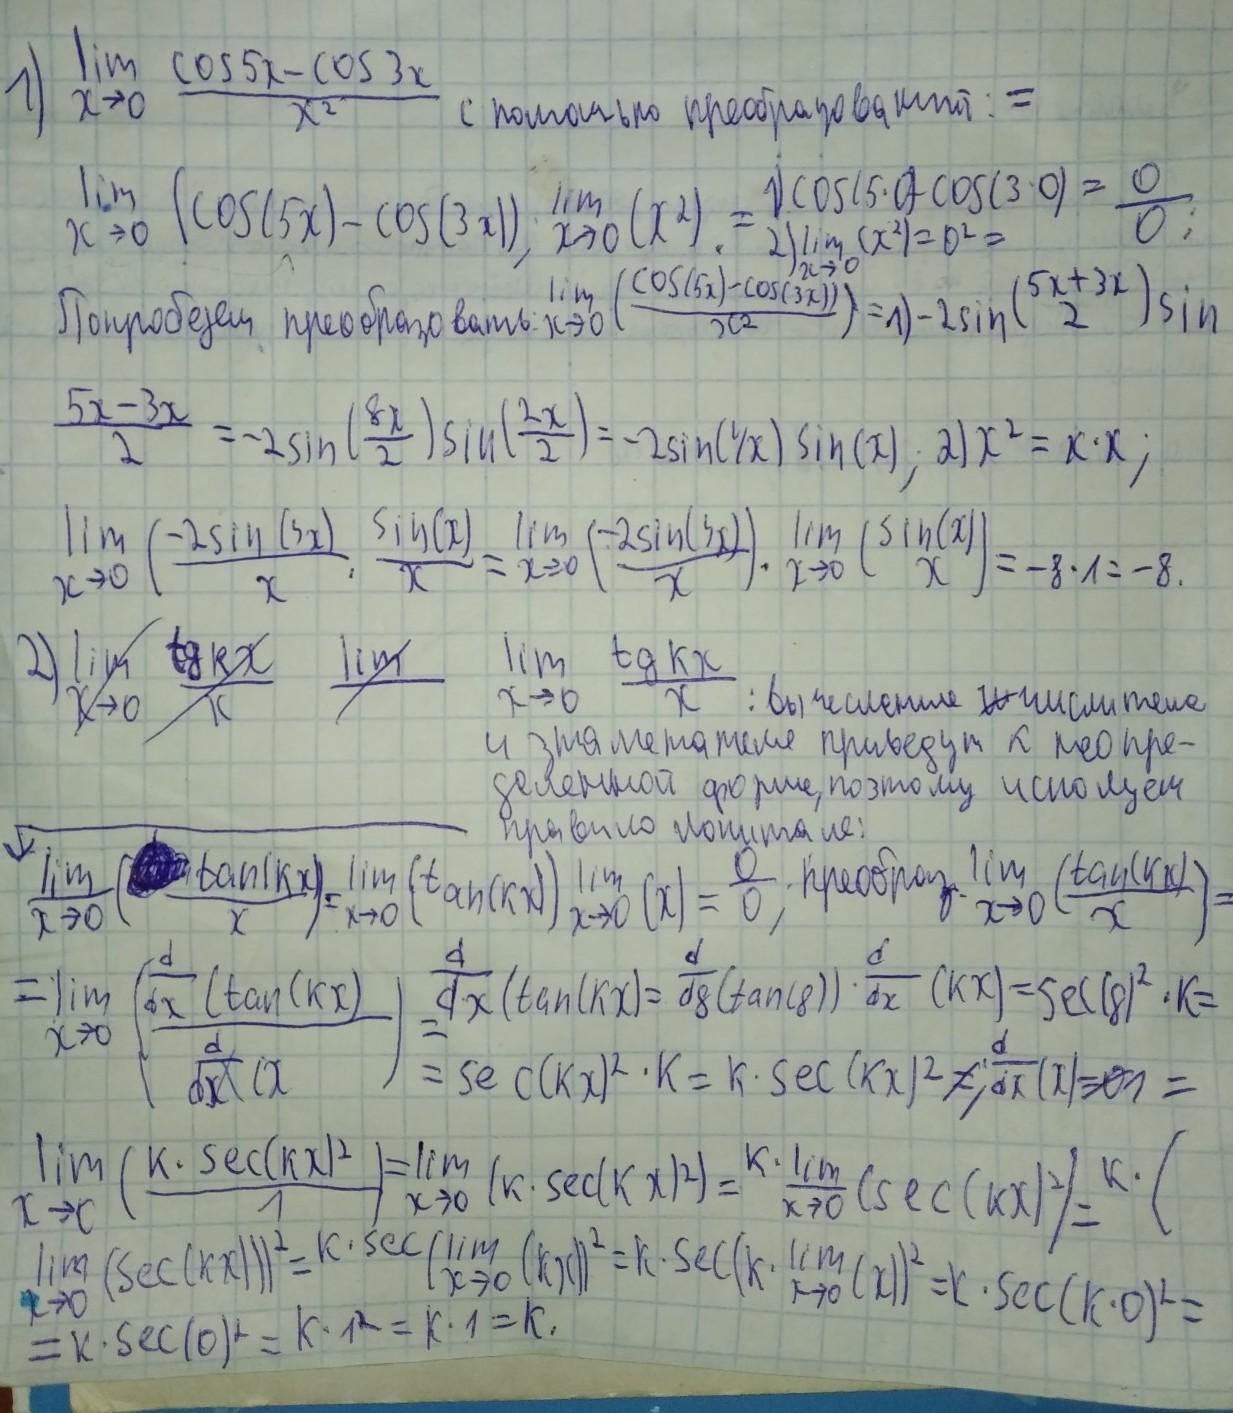 1) lim x→0 (cos5x−cos3x)/x² с помощью преобразований: =
lim x→0 (cos(5x)−cos(3x)); lim x→0 (x²). = 1) cos(5·0)−cos(3·0) = 0/0; 2) lim x→0 (x²)=0²=
Попробуем преобразовать: lim x→0 ((cos(5x)−cos(3x))/x²) = 1) −2sin((5x+3x)/2) sin
(5x−3x)/2 = −2sin(8x/2) sin(2x/2) = −2sin(4x) sin(x); 2) x² = x·x;
lim x→0 (−2sin(4x)/x · sin(x)/x = lim x→0 (−2sin(4x)/x) · lim x→0 (sin(x) x) = −8·1 = −8.
2) lim x→0 tgkx/x lim lim x→0 tgkx/x : вычисление числителя
и знаменателя приведут к неопре-
деленной форме, поэтому используем
правило Лопиталя:
lim x→0 (tan(kx)/x) = lim x→0 (tan(kx)) lim x→0 (x) = 0/0; преобраз. lim x→0 (tan(kx)/x) =
= lim x→0 (d/dx (tan(kx) / d/dx (x) = d/dx (tan(kx) = d/dg (tan(g)) · d/dx (kx) = sec(g)² · k =
= sec(kx)² · k = k · sec(kx)²; d/dx (x) = 1 =
lim x→0 (k·sec(kx)²/1) = lim x→0 (k·sec(kx)²) = k· lim x→0 (sec(kx)²) = k· (
lim x→0 (sec(kx)))² = k·sec(lim x→0 (kx))² = k·sec(k· lim x→0 (x))² = k·sec(k·0)² =
= k·sec(0)² = k·1² = k·1 = k.